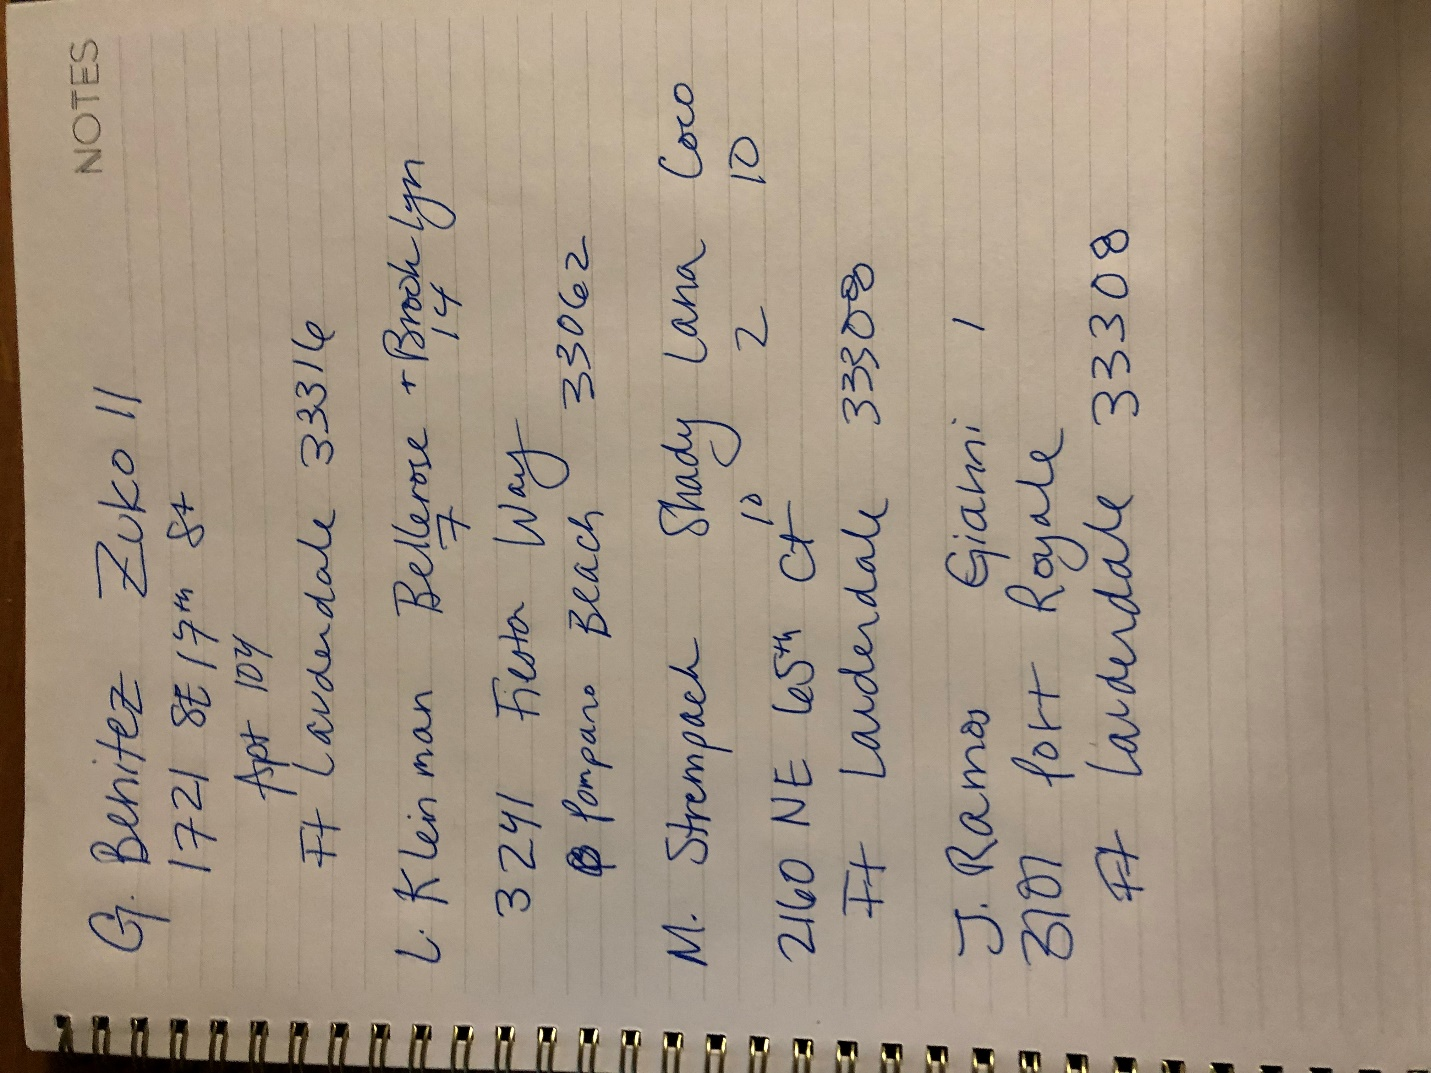 NOTES
G. Benitez Zuko 11
1721 SE 17th St
Apt 104
Ft Lauderdale 33316
L. Kleinman Bellerose + Brooklyn
7 14
3241 Fiesta Way
Pompano Beach 33062
M. Strempach Shady Lana Coco
10 2 10
2160 NE 65th Ct
Ft Lauderdale 33308
J. Ramos Gianni 1
3101 Port Royale
Ft Lauderdale 33308